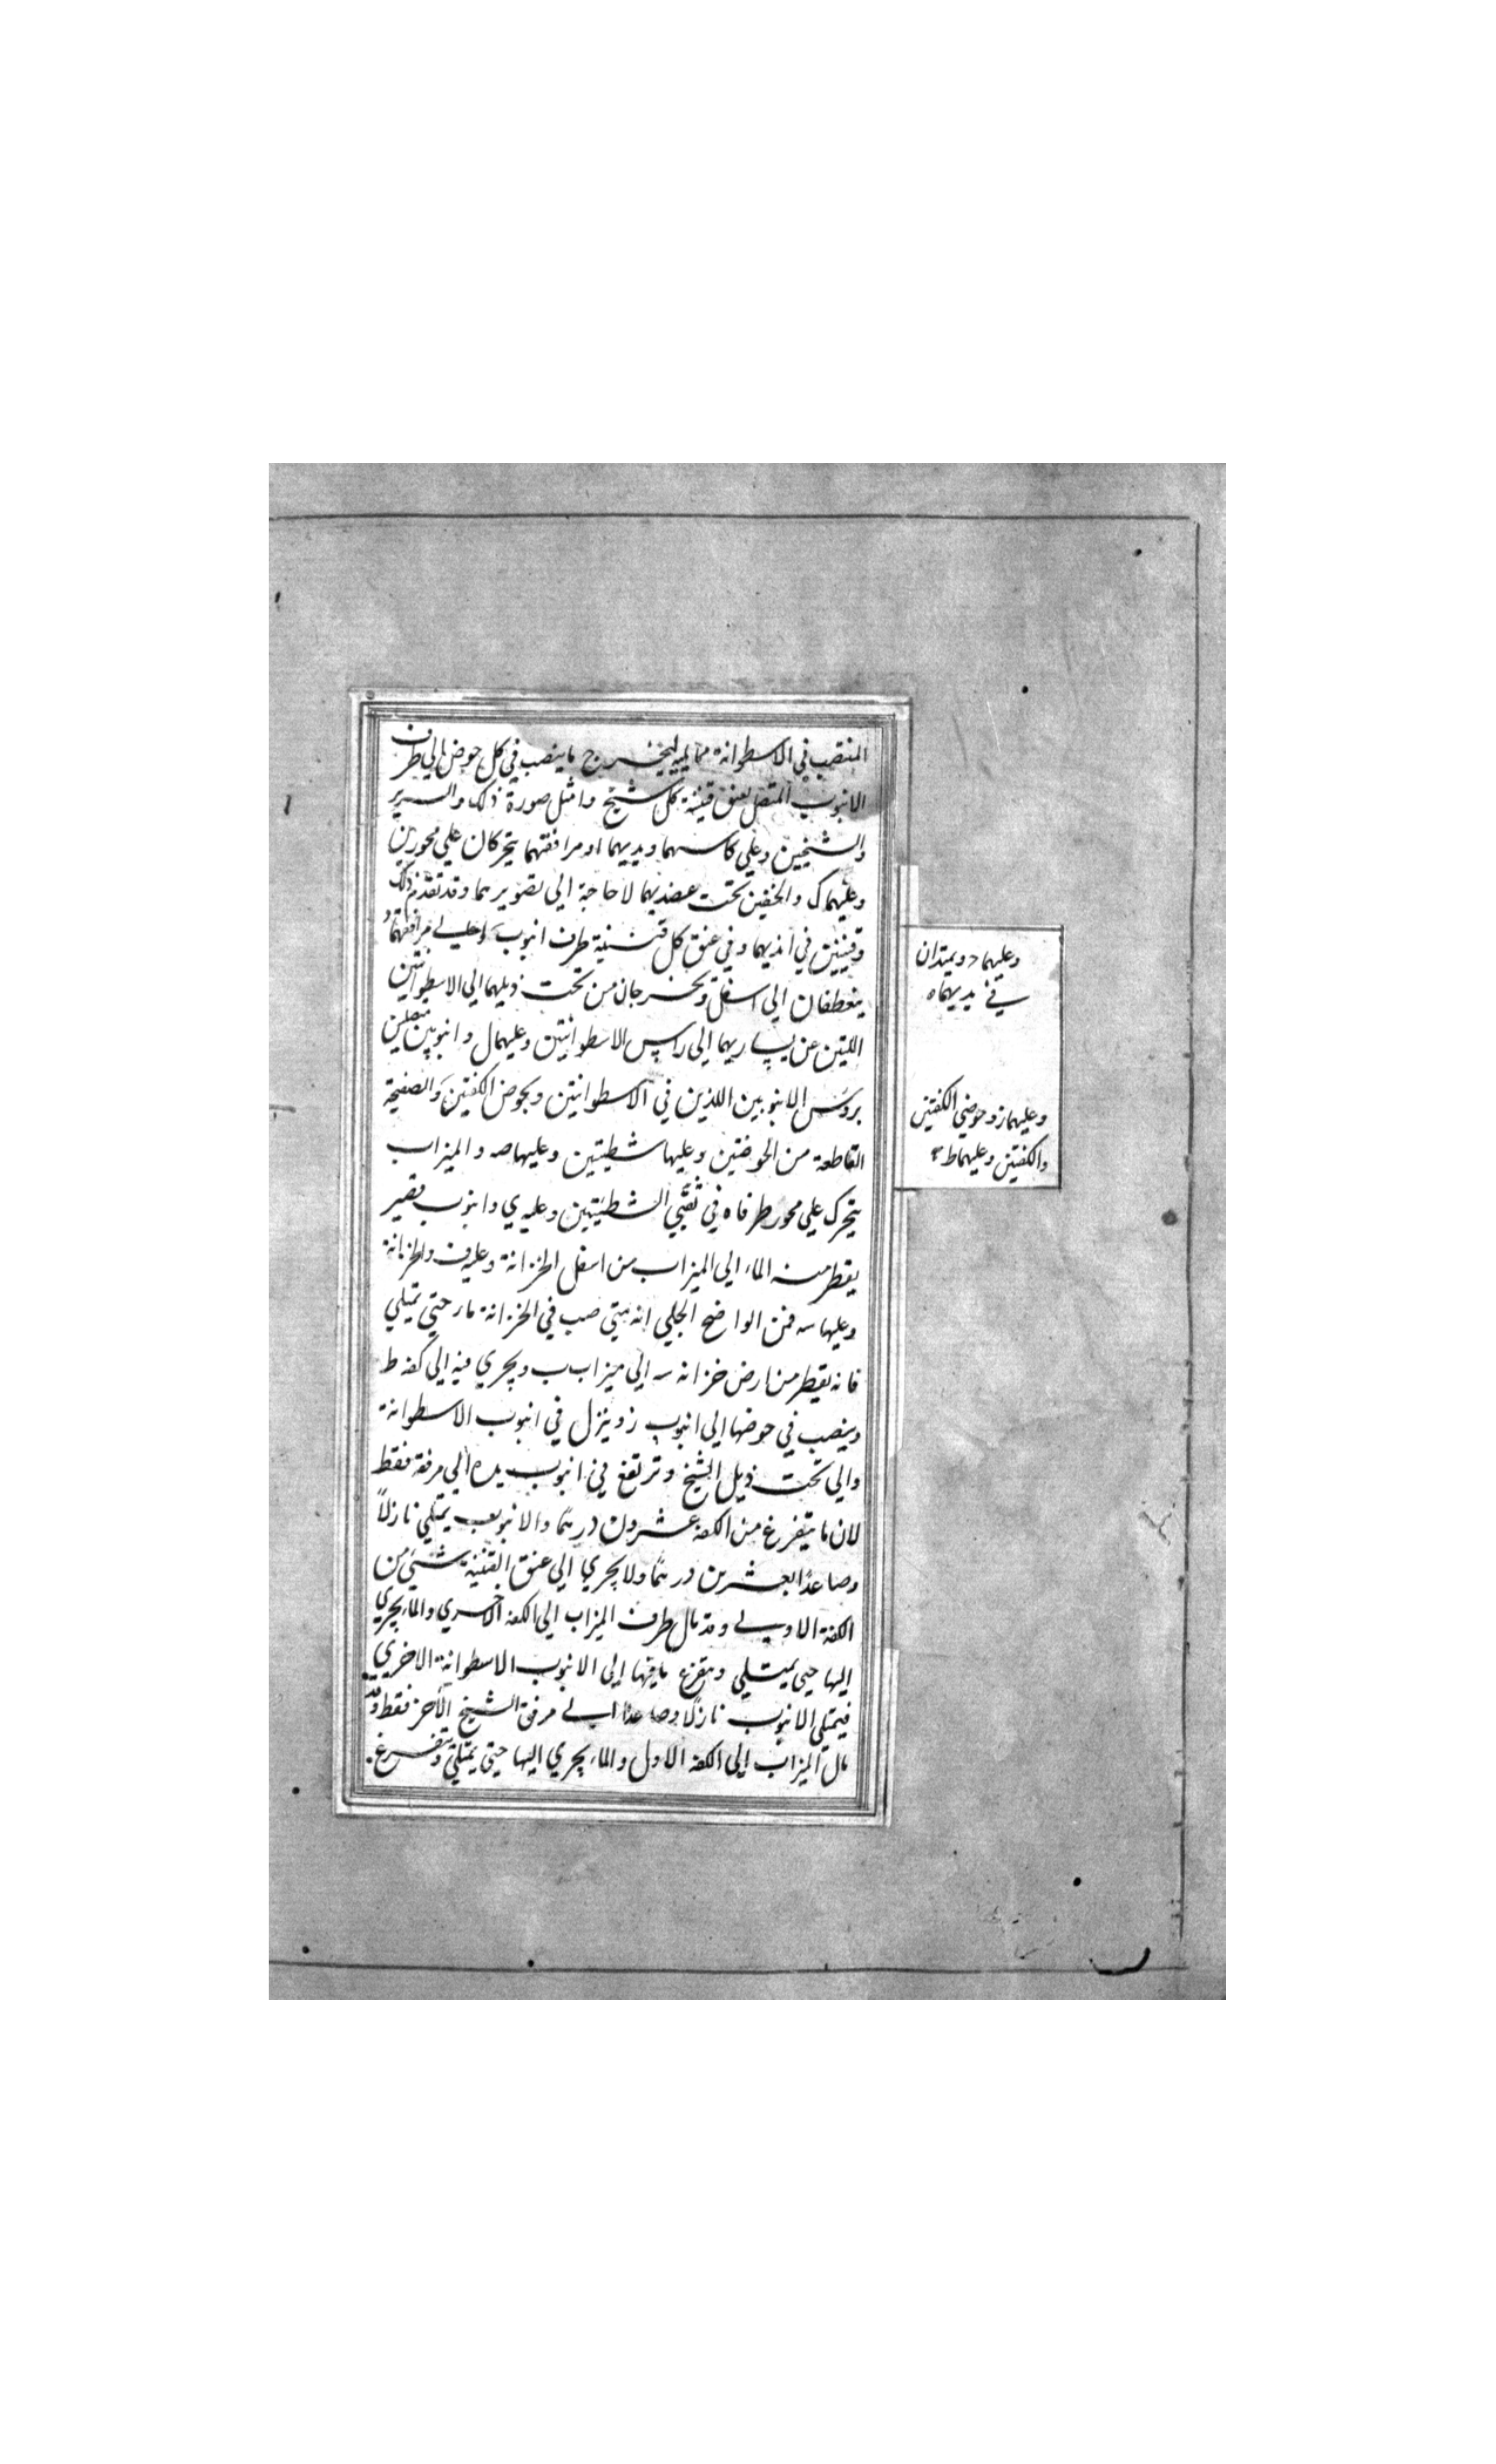 المنتصب في الاسطوانة مما يليه ليخرج ما ينصب في كل حوض الي طرف
الانبوب المتصل بعنق قنينة كل شيخ وامثل صورة ذلك والسرير
والشيخين وعلي كاسهما ويديهما اد مرافقهما يتحركان علي محورين
وعليهما ك والخفين تحت عضديهما لا حاجة الي تصويرهما وقد تقدم ذلك
وقنينتين في ايديهما وفي عنق كل قنينة طرف انبوب واعلي مرافقهما و
ينعطفان الي اسفل ويخرجان من تحت ذيلهما الي الاسطوانتين
اللتين عن يساريهما الي راس الاسطوانتين وعليهما ل وانبوبين متصلين
بروس الانبوبين اللذين في الاسطوانتين وبحوض الكفتين والصفيحة
القاطعة من الحوضين وعليها شظيتين وعليها صه والميزاب
يتحرك علي محور طرفاه في ثقبي الشظيتين وعليه ي وانبوب قصير
يقطر منه الماء الي الميزاب من اسفل الخزانة وعليه ف والخزانة
وعليها سه فمن الواضح الجلي انه متي صب في الخزانة ماء حتي تمتلي
فانه يقطر من ارض خزانة سه الي ميزاب ب ويجري فيه الي كفة ط
وينصب في حوضها الي انبوب ز وينزل في انبوب الاسطوانة
والي تحت ذيل الشيخ وترتفع في انبوب يده الي مرفقه فقط
لان ما يتفرغ من الكفة عشرون درهما والانبوب يمتلي نازلاً
وصاعداً بعشرين درهما ولا يجري الي عنق القنينة شيئ من
الكفة الاولي وقد مال طرف الميزاب الي الكفة الاخري والماء يجري
اليها حتي يمتلي ويتفرغ مافيها الي الانبوب الاسطوانة الاخري
فيمتلي الانبوب نازلا وصاعدا الي مرفق الشيخ الآخر فقط وقد
مال الميزاب الي الكفة الاول والماء يجري اليها حتي يمتلي ويتفرغ
وعليهما د ويمتدان
في يديهما ه
وعليهما ز وحوضي الكفتين
والكفتين وعليهما ط